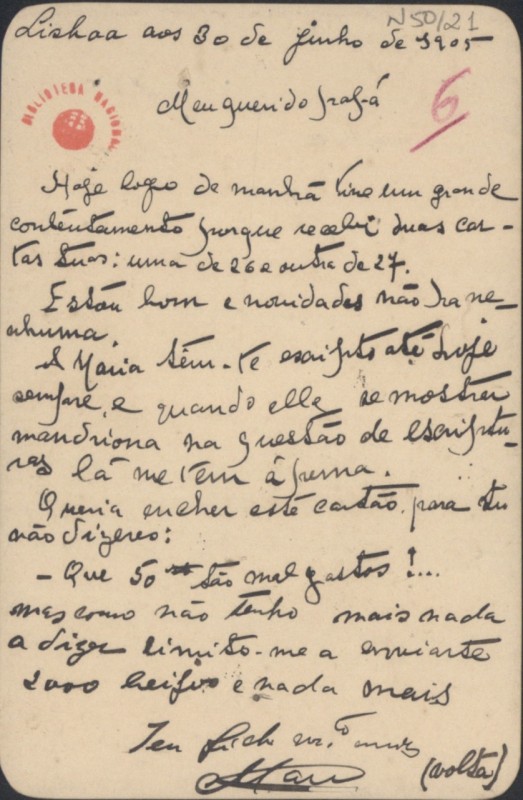 N50/21
Lisboa aos 30 de junho de 1905
6
BIBLIOTECA NACIONAL
Meu querido papá
Hoje logo de manhã tive um grande
contentamento porque recebi duas car-
tas tuas: uma de 26 e outra de 27.
Estou bom e novidades não ha ne-
nhuma.
A Maria têm-te escripto até hoje
sempre, e quando ella se mostrer
mandriona na questão de escriptu-
ras lá me tem á perna.
Queria encher este cartão, para tu
não dizeres:
– Que 50 tão mal gastos!...
mas como não tenho mais nada
a dizer limito-me a enviarte
2000 beijos e nada mais
Teu filho m.to
(volta)